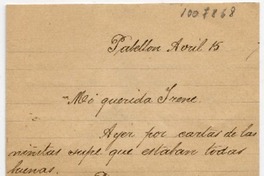 1007868
Pabellon Avril 15
Mi querida Irene.
Ayer por cartas de las
niñitas supe que estaban todas
buenas.